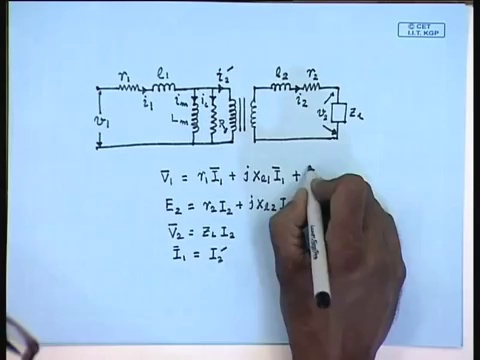 © CET
I.I.T. KGP
r₁ l₁ i₂′ l₂ r₂
i₁ i_m i_c i₂
v₁ L_m R v₂ Z_L
V̄₁ = r₁ Ī₁ + j x_l1 Ī₁ +
E₂ = r₂ I₂ + j x_l2 I
V̄₂ = Z_L I₂
Ī₁ = I₂′